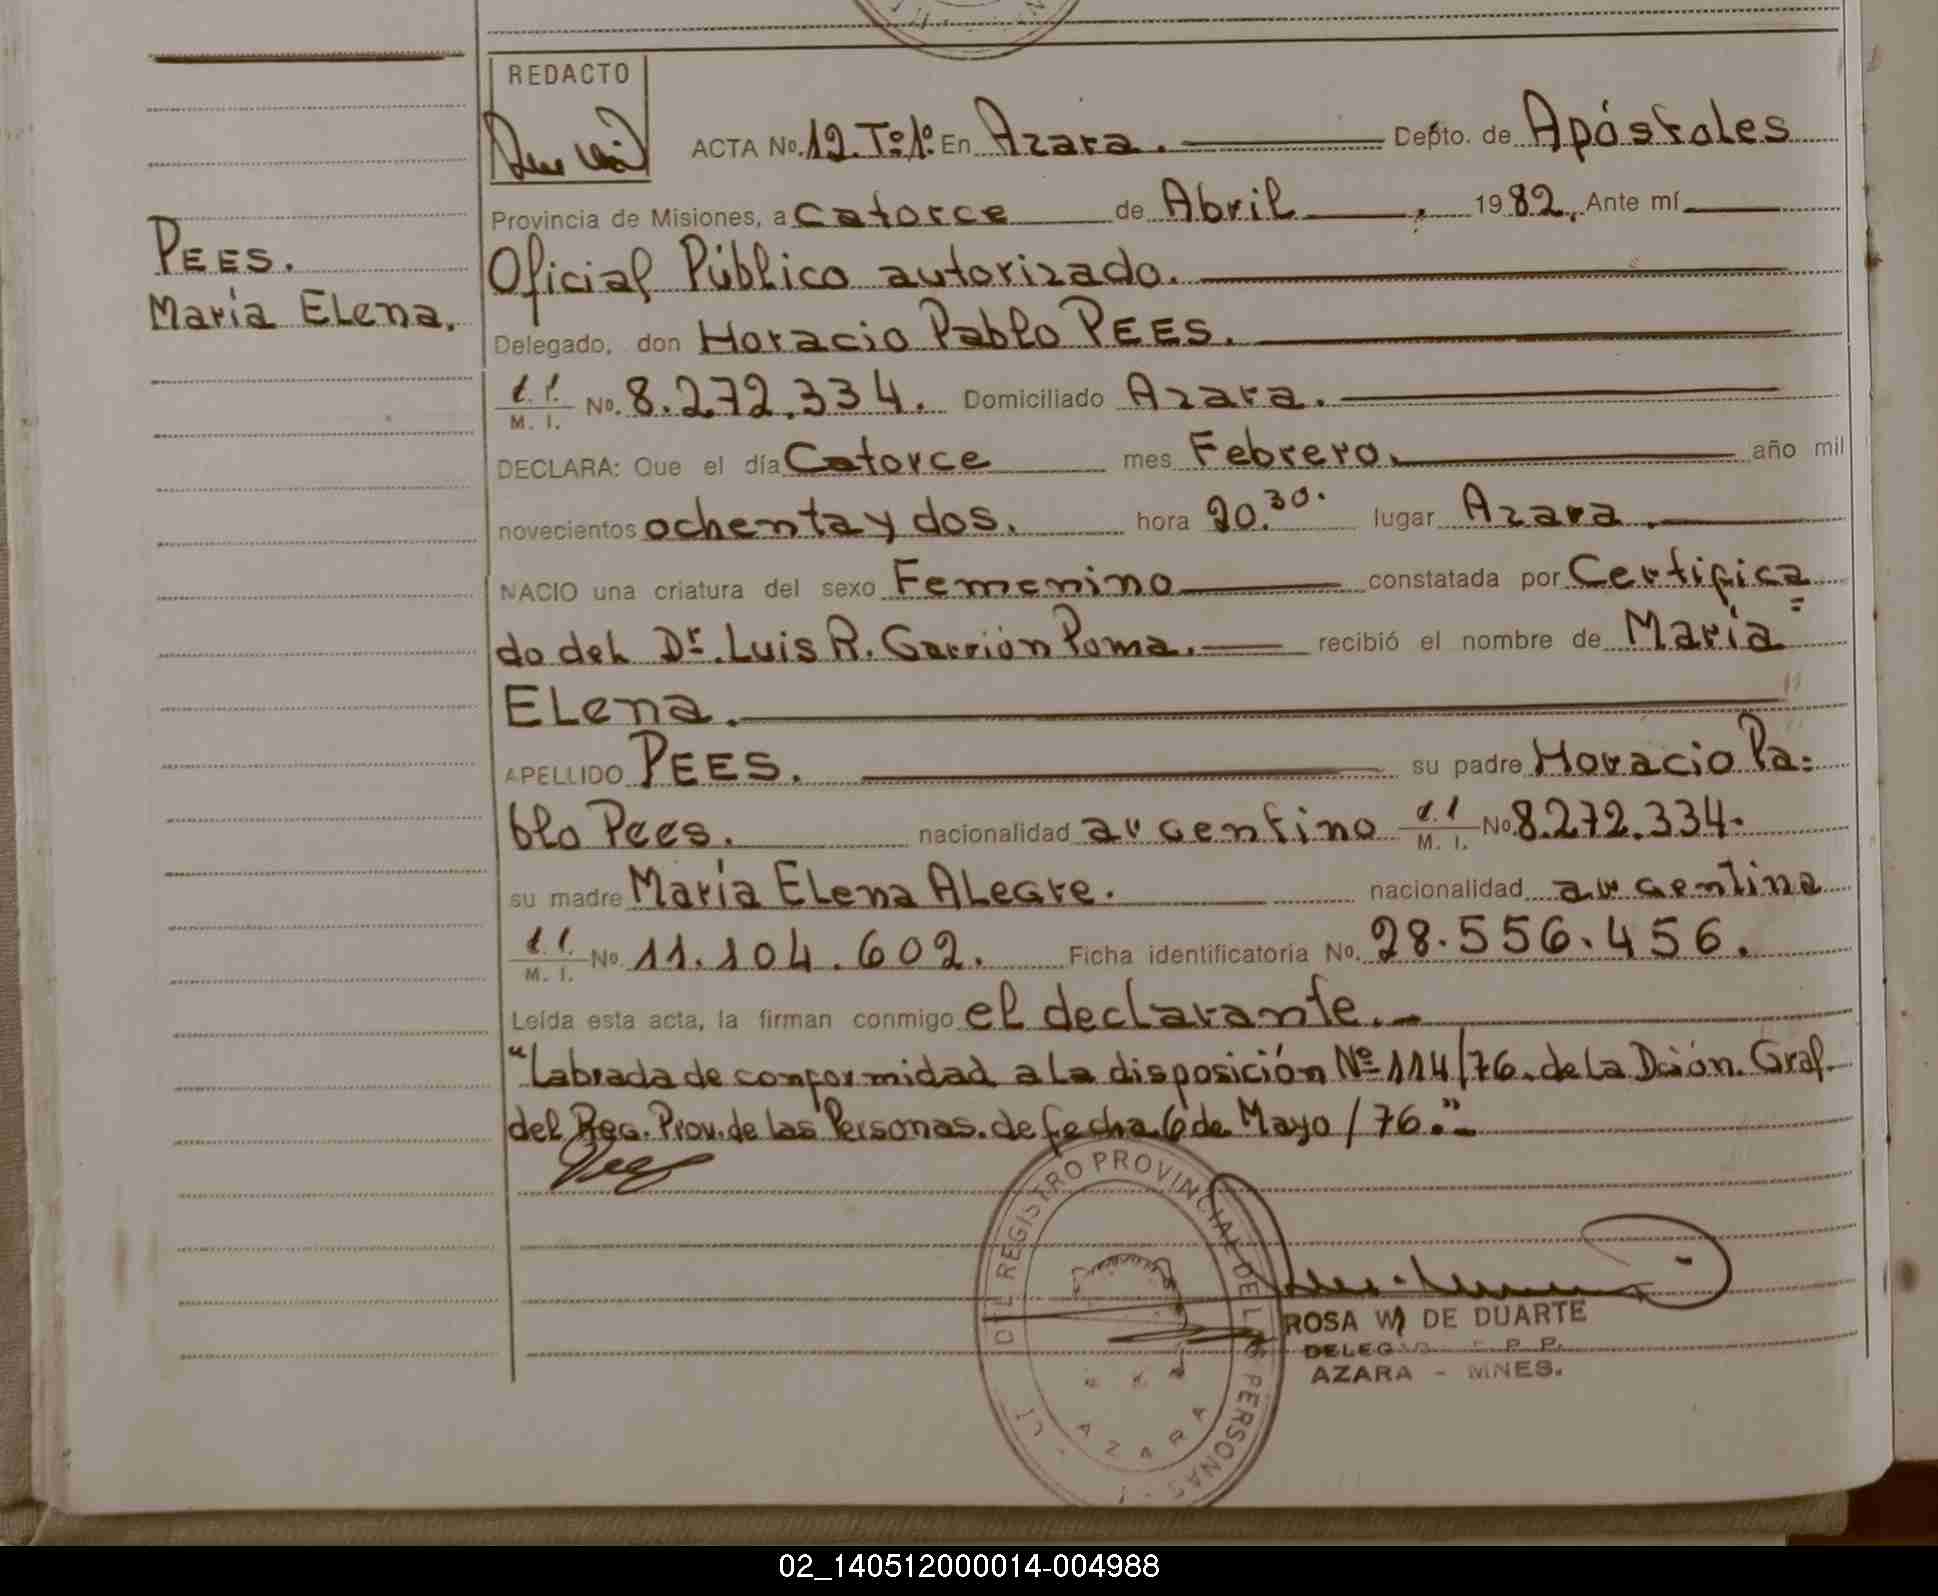 REDACTO
ACTA No. 12. Tº 1º En Azara. Depto. de Apóstoles
Provincia de Misiones, a catorce de Abril 1982, Ante mí
PEES.
Oficial Público autorizado.
María Elena.
Delegado, don Horacio Pablo PEES.
M. I. No. 8.272.334. Domiciliado Azara.
DECLARA: Que el día Catorce mes Febrero. año mil
novecientos ochenta y dos. hora 20.30. lugar Azara.
NACIO una criatura del sexo Femenino constatada por Certifica=
do del Dr. Luis R. Garrión Poma. recibió el nombre de María
Elena.
APELLIDO PEES. su padre Horacio Pa=
blo Pees. nacionalidad argentino M. I. No. 8.272.334.
su madre María Elena Alegre. nacionalidad argentina
M. I. No. 11.104.602. Ficha identificatoria No. 28.556.456.
Leída esta acta, la firman conmigo el declarante.-
"Labrada de conformidad a la disposición Nº 114/76. de la Dción. Gral.
del Reg. Prov. de las Personas. de fecha 6 de Mayo/76."-
DEL REGISTRO PROVINCIAL DE LAS PERSONAS
AZARA
ROSA W DE DUARTE
AZARA - MNES.
02_140512000014-004988